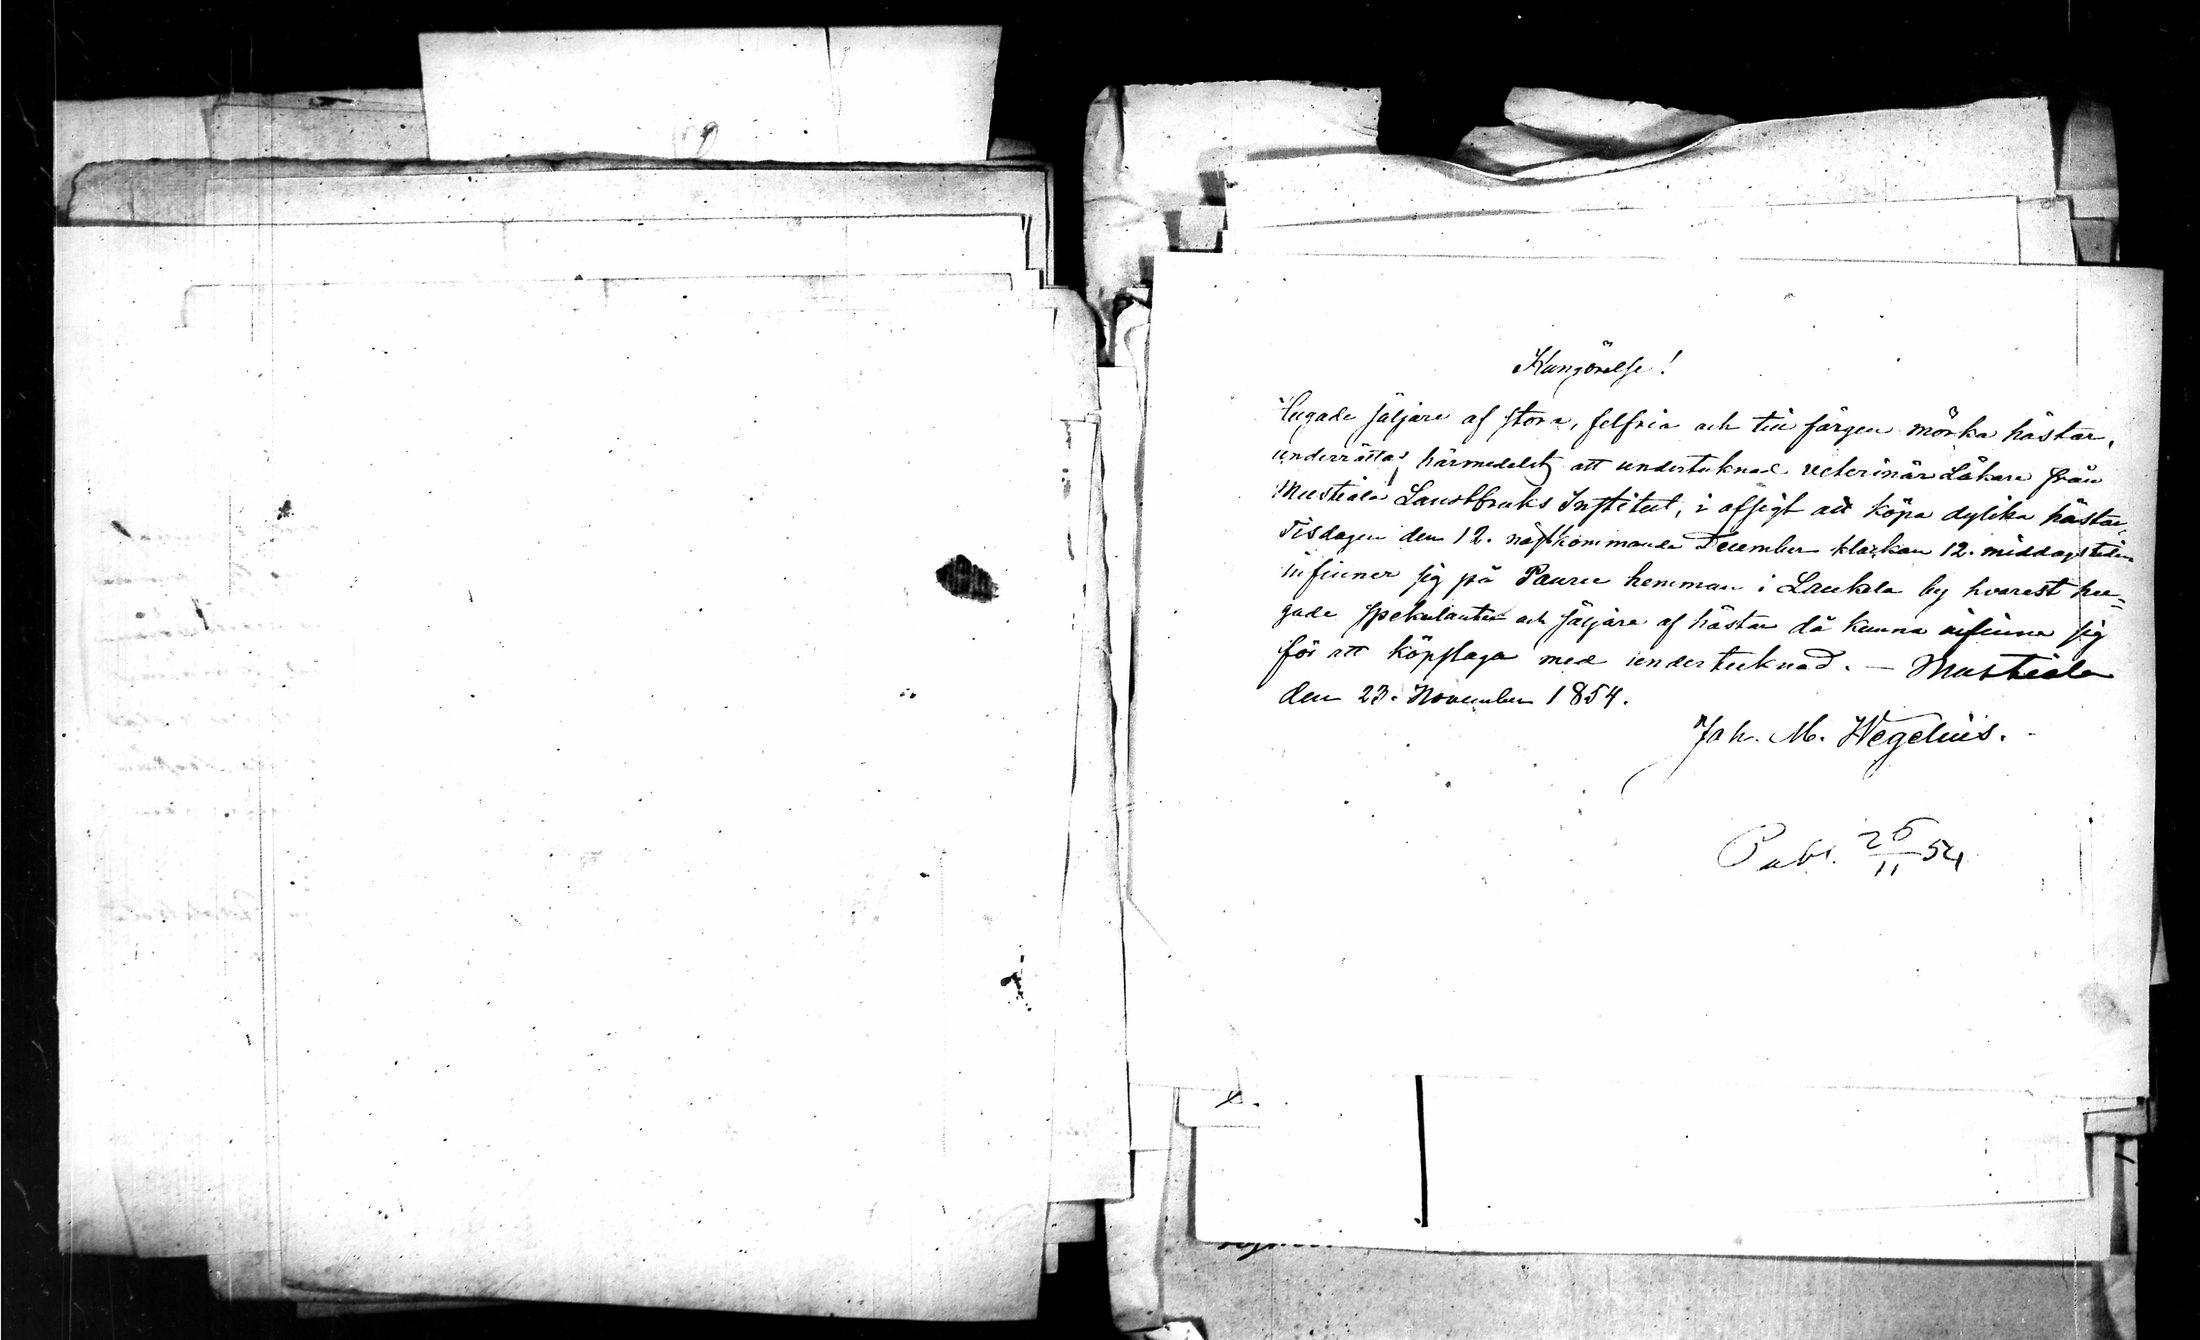 Kungörelse!
Hugade säljare af stora, felfria och till färgen mörka hästar,
underrättas härmedelst, att undertecknad veterinär Läkare från
Mustiala Landtbruks Institut, i afsigt att köpa dylika hästar
Tisdagen den 12. nästkommande December klockan 12. middagstiden
infinner sig på Pauru hemman i Laukela by hvarest hu=
gade spekulanter och säljare af hästar då kunna infinna sig
för att köpslaga med undertecknad. — Mustiala
den 23. November 1854.
Joh. M. Wegelius.
Publ. 26/11 54